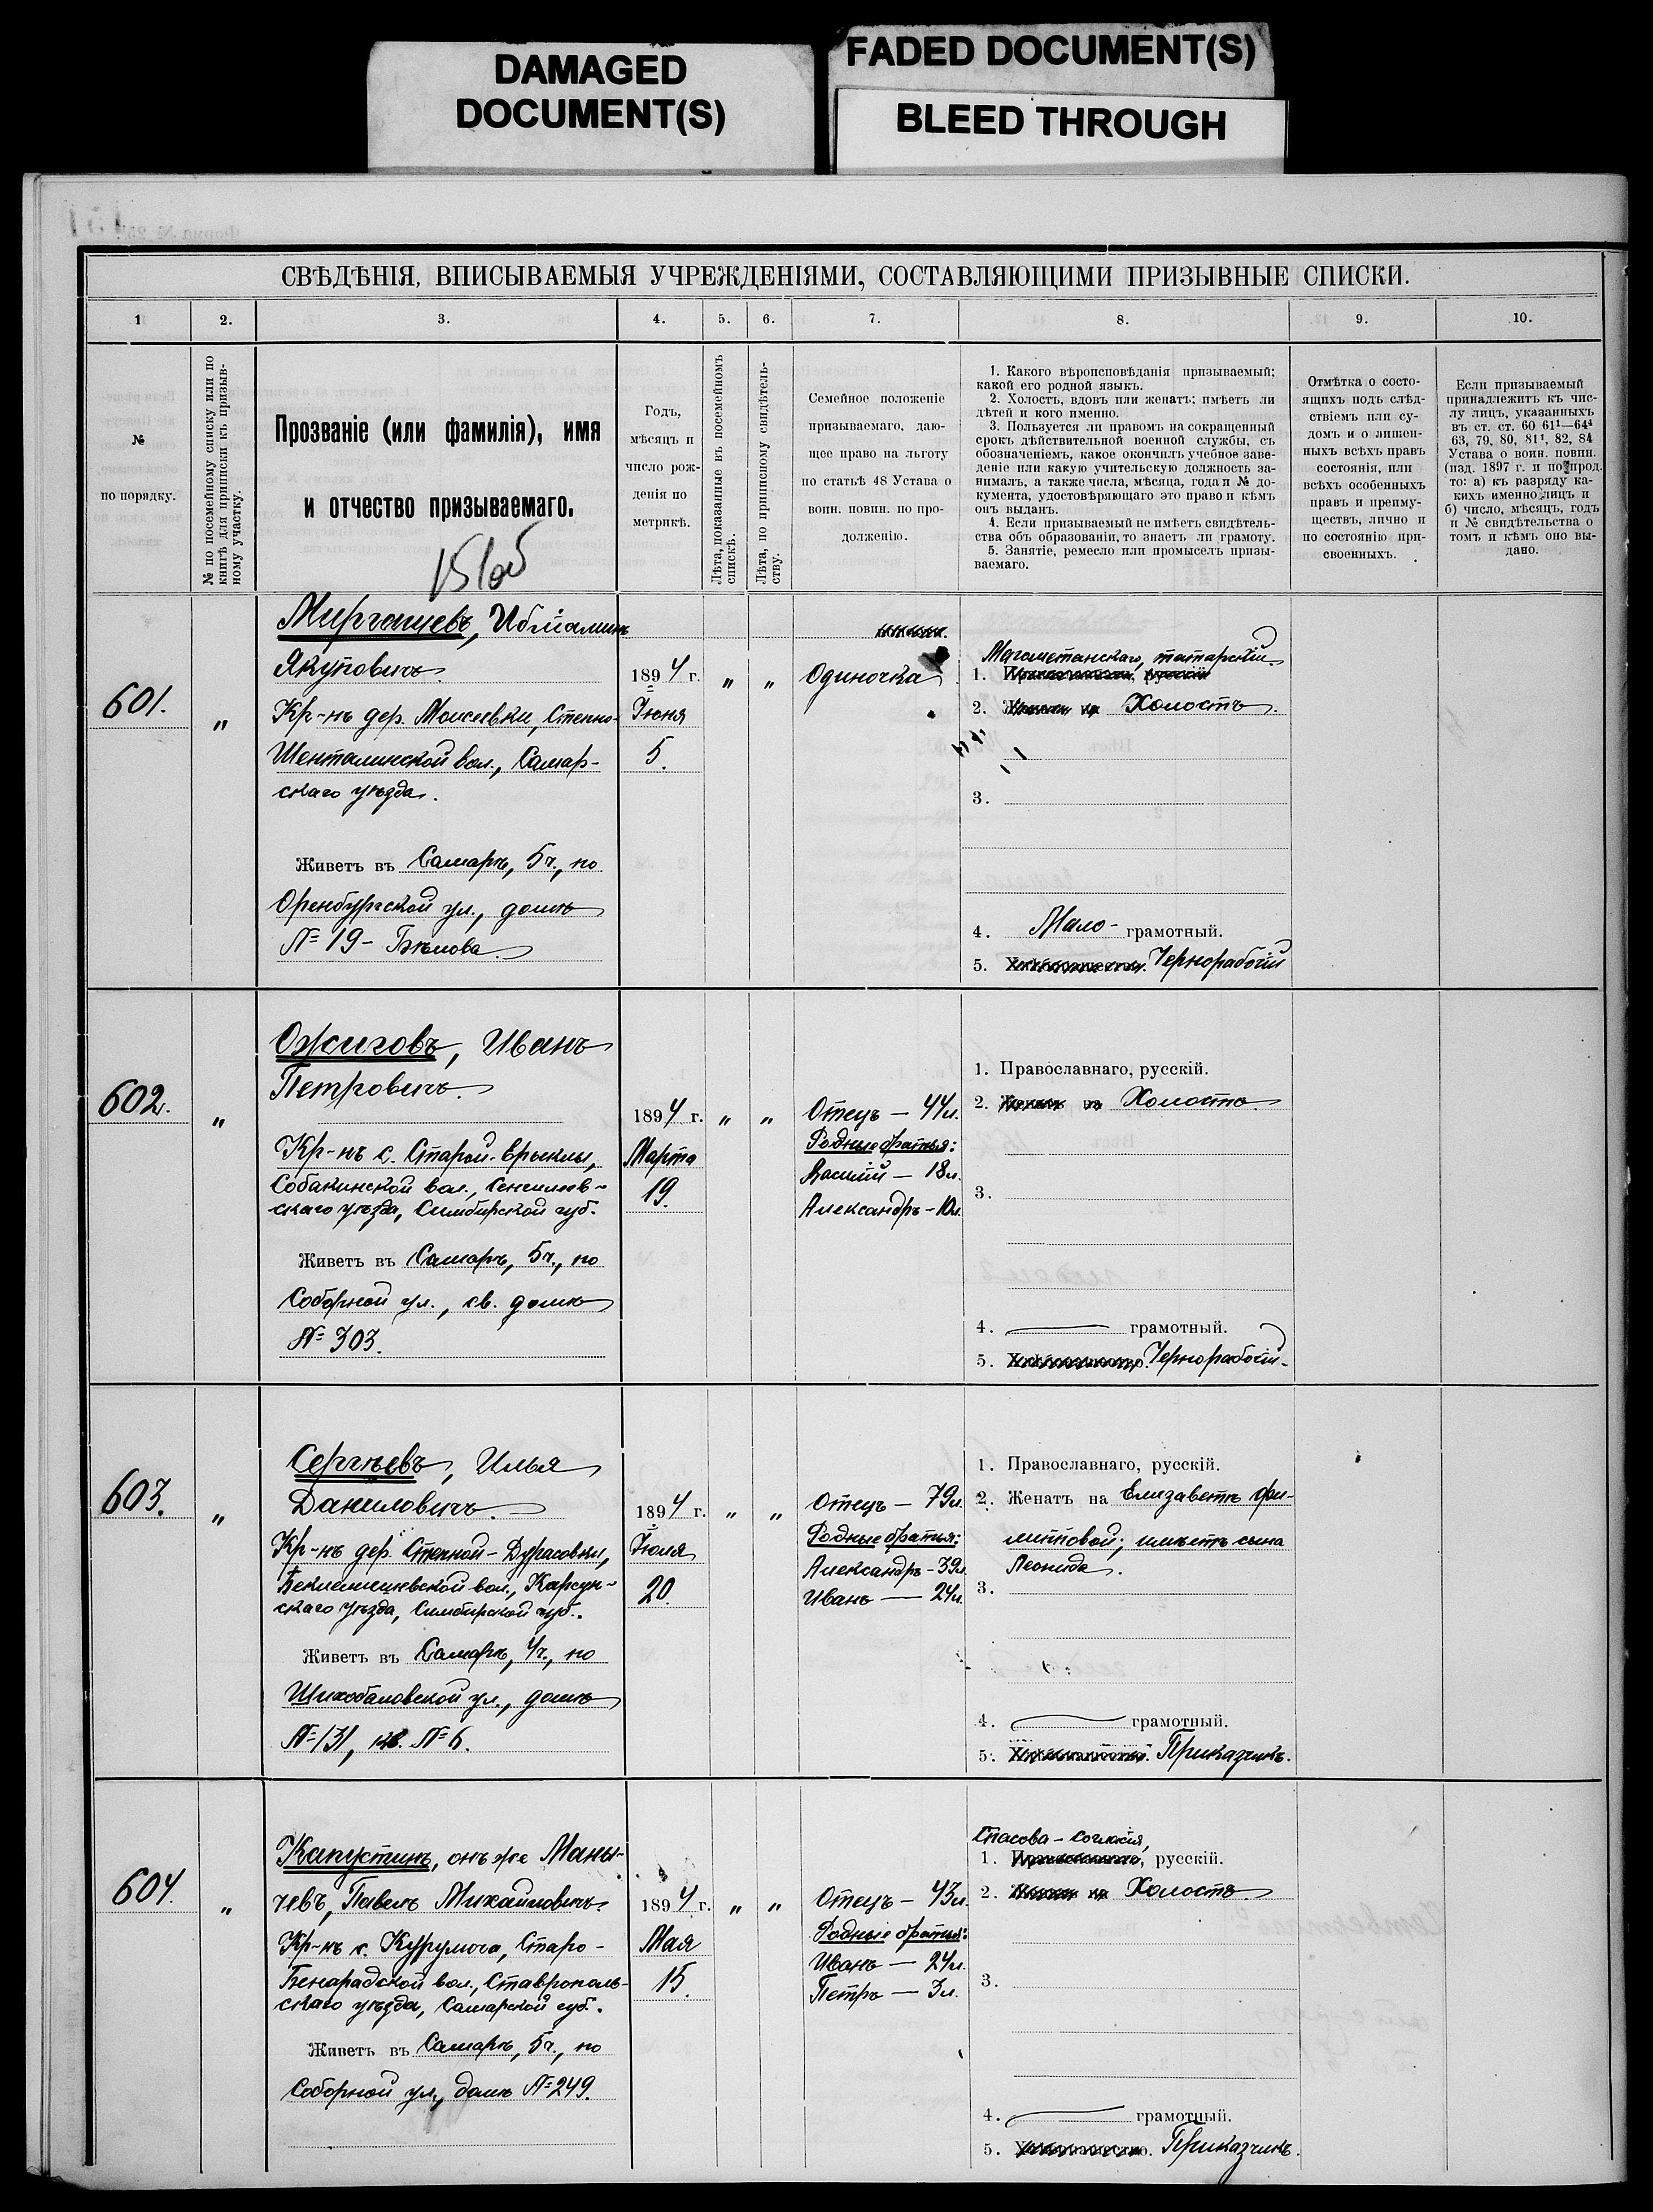 DAMAGED
DOCUMENT(S)
FADED DOCUMENT(S)
BLEED THROUGH
СВѢДѢНІЯ, ВПИСЫВАЕМЫЯ УЧРЕЖДЕНІЯМИ, СОСТАВЛЯЮЩИМИ ПРИЗЫВНЫЕ СПИСКИ.
1 2. 3. 4. 5. 6. 7. 8. 9. 10.
№
по порядку.
№ по посемейному списку или по
книгѣ для приписки къ призыв-
ному участку.
Прозваніе (или фамилія), имя
и отчество призываемаго.
Годъ,
мѣсяцъ и
число рож-
денія по
метрикѣ.
Лѣта, показанные въ посемейномъ
спискѣ.
Лѣта, по приписному свидѣтель-
ству.
Семейное положеніе
призываемаго, даю-
щее право на льготу
по статьѣ 48 Устава о
воин. повин. по про-
долженію.
1. Какого вѣроисповѣданія призываемый;
какой его родной языкъ.
2. Холостъ, вдовъ или женатъ; имѣетъ ли
дѣтей и кого именно.
3. Пользуется ли правомъ на сокращенный
срокъ дѣйствительной военной службы, съ
обозначеніемъ, какое окончилъ учебное заве-
деніе или какую учительскую должность за-
нималъ, а также числа, мѣсяца, года и № до-
кумента, удостовѣряющаго это право и кѣмъ
онъ выданъ.
4. Если призываемый не имѣетъ свидѣтель-
ства объ образованіи, то знаетъ ли грамоту.
5. Занятіе, ремесло или промыселъ призы-
ваемаго.
Отмѣтка о состо-
ящихъ подъ слѣд-
ствіемъ или су-
домъ и о лишен-
ныхъ всѣхъ правъ
состоянія, или
всѣхъ особенныхъ
правъ и преиму-
ществъ, лично и
по состоянію при-
своенныхъ.
Если призываемый
принадлежитъ къ чис-
лу лицъ, указанныхъ
въ ст. ст. 60 61¹—64⁴
63, 79, 80, 81¹, 82, 84
Устава о воин. повин.
(изд. 1897 г. и по прод.
то: а) къ разряду ка-
кихъ именно лицъ и
б) число, мѣсяцъ, годъ
и № свидѣтельства о
томъ и кѣмъ оно вы-
дано.
601.
"
Якуповичъ.
Кр-нъ дер. Моисеевки, Степно-
Шенталинской вол., Самар-
скаго уѣзда.
Живетъ въ Самарѣ, 5ч., по
Оренбургской ул., домъ
№ 19 - Бѣлова.
1894 г.
Іюня
5.
" "
Одиночка
Магометанскаго, татарскій.
1.
2. Холостъ.
3.
4. Мало- грамотный.
5. Чернорабочій
602.
"
Ожиговъ, Иванъ
Петровичъ.
Кр-нъ с. Старой
Собакинской вол., Сенгилеев-
скаго уѣзда, Симбирской губ.
Живетъ въ Самарѣ, 5ч., по
Соборной ул., св. домъ
№ 303.
1894 г.
Марта
19.
" "
Отецъ — 44л.
Родные братья:
Василій — 18л.
Александръ — 10л.
1. Православнаго, русскій.
2. Холостъ.
3.
4. — грамотный.
5. Чернорабочій.
603.
"
Сергѣевъ, Илья
Даниловичъ.
Кр-нъ дер. Степной-Дурасовки,
Бекшеминевской вол., Карсун-
скаго уѣзда, Симбирской губ.
Живетъ въ Самарѣ, 4ч., по
Шихобаловской ул., домъ
№ 131, кв. № 6.
1894 г.
Іюля
20.
" "
Отецъ — 79л.
Родные братья:
Александръ - 39л.
Иванъ — 24л.
1. Православнаго, русскій.
2. Женатъ на Елизаветѣ Фи-
липповой; имѣетъ сына
Леонида.
3.
4. — грамотный.
5. Приказчикъ.
604.
"
Капустинъ, онъ же Маны-
чевъ, Павелъ Михайловичъ
Кр-нъ с. Курумоча, Старо-
Бинарадской вол., Ставрополь-
скаго уѣзда, Самарской губ.
Живетъ въ Самарѣ, 5ч., по
Соборной ул., домъ № 249.
1894 г.
Мая
15.
" "
Отецъ — 43л.
Родные братья:
Иванъ — 24л.
Петръ — 3л.
Спасова-Согласія,
1. русскій.
2. Холостъ
3.
4. — грамотный.
5. Приказчикъ.